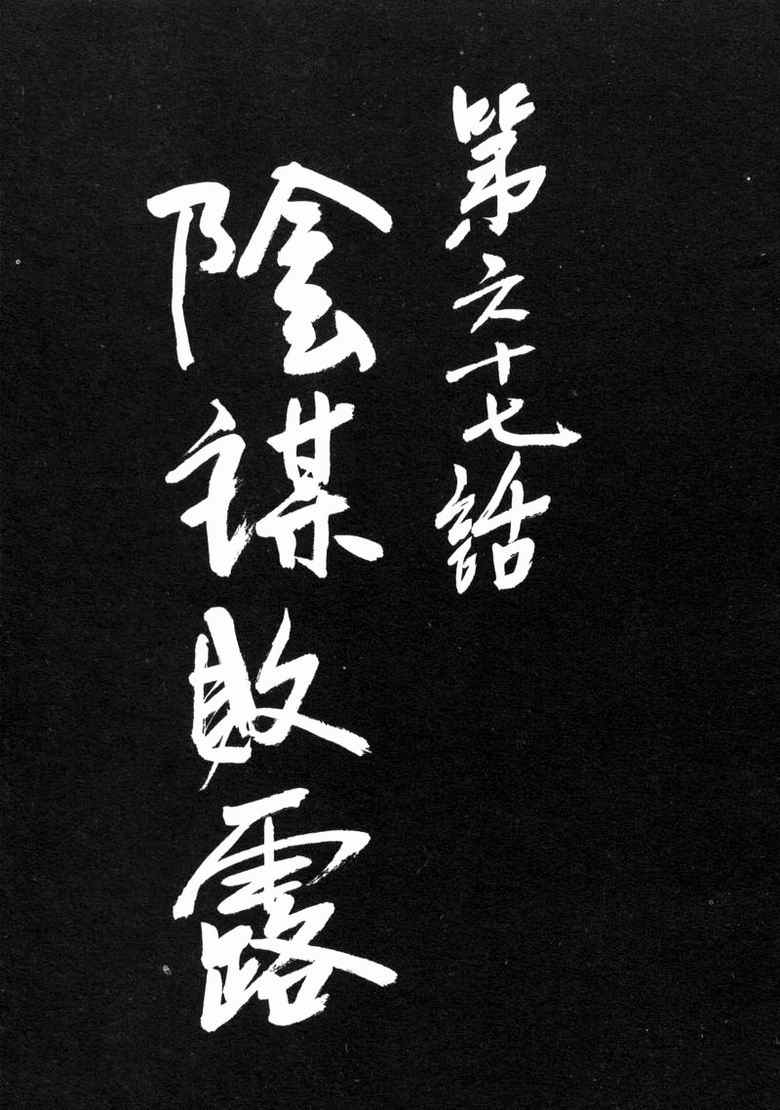 第六十七話
陰謀敗露